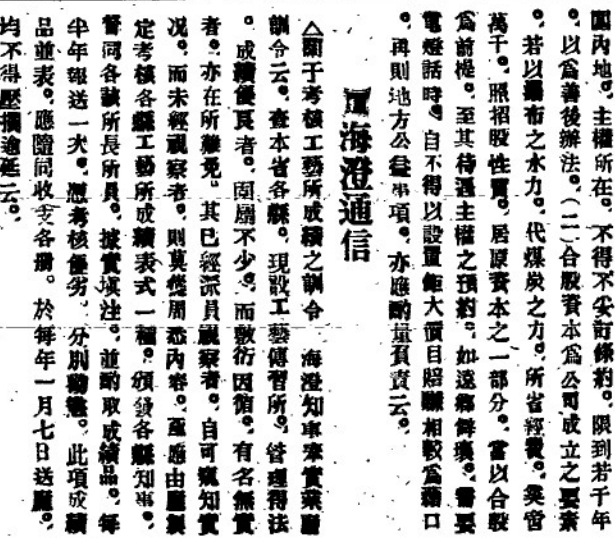 國內地。主權所在。不得不妥訂條約。限到若干年
。以爲善後辦法。(二)合股資本爲公司成立之要素
。若以瀑布之水力。代煤炭之力。所省經費。奚啻
萬千。照招股性質。居原資本之一部分。當以合股
爲前提。至其待遇主權之預約。如遠鄉僻壤。需要
電燈話時。自不得以設置鉅大價目賠賺相較爲藉口
。再則地方公益事項。亦應酌量負責云。
海澄通信
△關于考核工藝所成績之訓令 海澄知事奉實業廳
訓令云。查本省各縣。現設工藝傳習所。管理得法
。成績優良者。固屬不少。而敷衍因循。有名無實
者。亦在所難免。其已經派員視察者。自可窺知實
况。而未經視察者。則莫獲周悉內容。亟應由廳製
定考核各縣工藝所成績表式一種。頒發各縣知事。
督同各該所長所員。據實塡注。並酌取成績品。每
半年報送一次。憑考核優劣。分別勸懲。此項成績
品並表。應隨同收支各册。於每年一月七日送廳。
均不得壓擱逾延云。